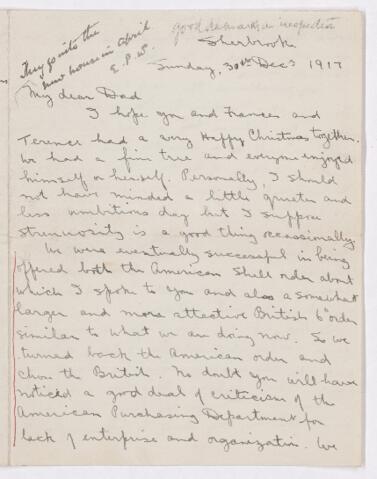 They go into the
new house in April
E.P.W.
good remarks on
Sherbrooke
Sunday, 30th Dec. 1917
My dear Dad
I hope you and Frances and
Terence had a very Happy Christmas together.
We had a fine tree and everyone enjoyed
himself or herself. Personally, I should
not have minded a little quieter and
less ambitious day but I suppose
strenuosity is a good thing occassionally
We were eventually successful in being
offered both the American Shell order about
which I spoke to you and also a somewhat
larger and more attractive British 6" order
similar to what we are doing now. So we
turned back the American order and
chose the British. No doubt you will have
noticed a good deal of criticism of the
American Purchasing Department for
lack of enterprise and organization. We